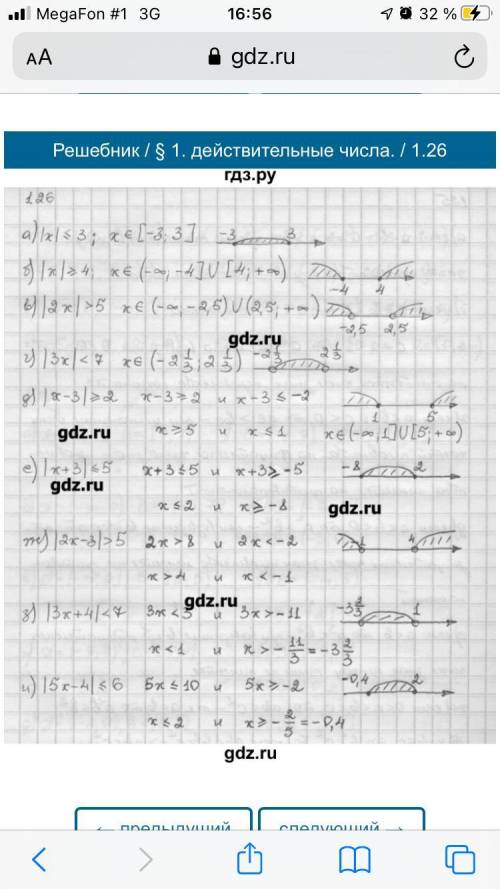 MegaFon #1 3G 16:56 32 %
AA gdz.ru
Решебник / § 1. действительные числа. / 1.26
гдз.ру
1.26
а) |x| ≤ 3; x ∈ [-3; 3] -3 3
б) |x| ≥ 4; x ∈ (-∞; -4] ∪ [4; +∞) -4 4
в) |2x| > 5 x ∈ (-∞; -2,5) ∪ (2,5; +∞) -2,5 2,5
gdz.ru
г) |3x| < 7 x ∈ (-2 1/3; 2 1/3) -2 1/3 2 1/3
д) |x-3| ≥ 2 x-3 ≥ 2 и x-3 ≤ -2 1 5
gdz.ru x ≥ 5 и x ≤ 1 x ∈ (-∞; 1] ∪ [5; +∞)
е) |x+3| ≤ 5 x+3 ≤ 5 и x+3 ≥ -5 -8 2
gdz.ru
x ≤ 2 и x ≥ -8 gdz.ru
ж) |2x-3| > 5 2x > 8 и 2x < -2 -1 4
x > 4 и x < -1
gdz.ru
з) |3x+4| < 7 3x < 3 и 3x > -11 -3 2/3 1
x < 1 и x > -11/3 = -3 2/3
и) |5x-4| ≤ 6 5x ≤ 10 и 5x ≥ -2 -0,4 2
x ≤ 2 и x ≥ -2/5 = -0,4
gdz.ru
← предыдущий следующий →